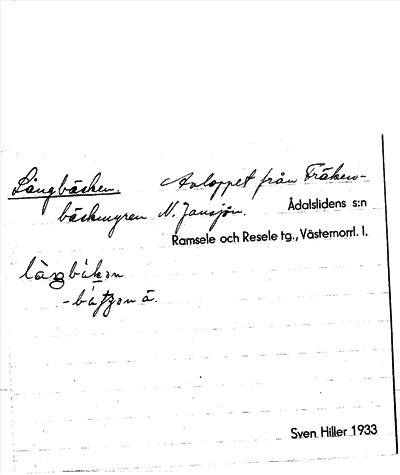 Långbäcken. Avloppet från Fräken-
bäckmyren N. Jansjön. Ådalslidens s:n
Ramsele och Resele tg., Västernorrl. l.
Sven Hiller 1933